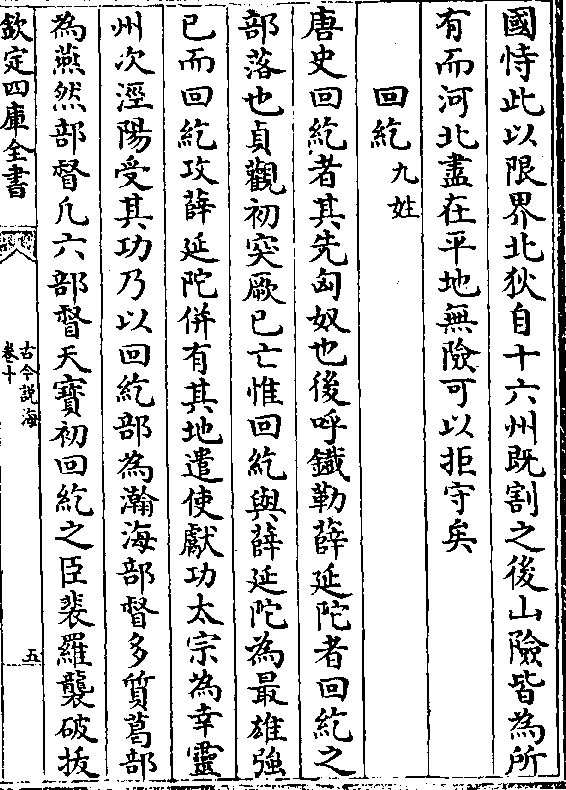 國恃此以限界北狄自十六州既割之後山險皆為所
有而河北盡在平地無險可以拒守矣
回紇九姓
唐史回紇者其先匈奴也後呼鐵勒薛延陀者回紇之
部落也貞觀初突厥已亡惟回紇與薛延陀為最雄強
已而回紇攻薛延陀併有其地遣使獻功太宗為幸靈
州次涇陽受其功乃以回紇部為瀚海部督多質葛部
為燕然部督凡六部督天寶初回紇之臣裴羅襲破拔
欽定四庫全書
古今說海
卷十
五